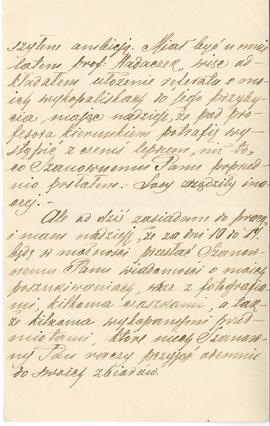 szytem ambicję. Miał być u mnie
latem prof. Hadaczek, więc od-
kładałem ułożenie referatu o mo-
ich wykopaliskach do jego przyby-
cia mając nadzieję, że pod pro-
fesora kierunkiem potrafię wy-
stąpić z czemś lepszem, niż to,
co Szanownemu Panu poprzed-
nio posłałem. Losy zrządziły ina-
czej. -
Ale od dziś zasiadam do pracy
i mam nadzieję, że za dni 10 do 14.
będę w możności przesłać Szanow-
nemu Panu wiadomości o moich
poszukiwaniach, wraz z fotografia-
mi, kilkoma czaszkami, a tak-
że kilkoma wykopanymi przed-
miotami, które niech Szanow-
ny Pan raczy przyjąć odemnie
do swoich zbiorów.